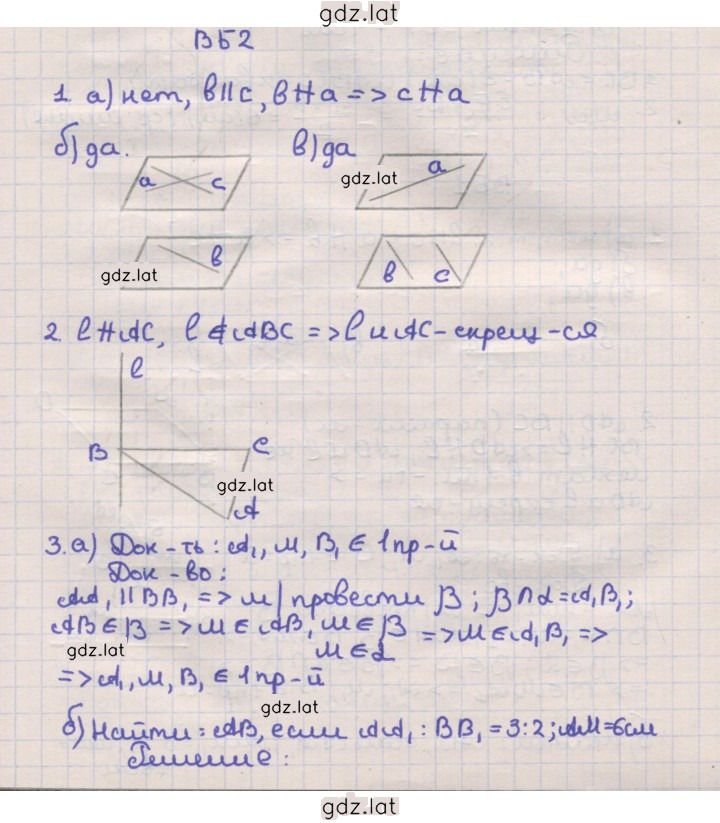 gdz.lat
В Б 2
1. а) нет, b∥c, b∦a => c∦a
б) да. в) да
a c gdz.lat a
b b c
gdz.lat
2. l∦AC, l∉ABC => l и AC - скрещ-ся
l
B C
gdz.lat
A
3. а) Док-ть: A₁, M, B₁ ∈ 1 пр-й
Док-во:
AA₁ ∥ BB₁ => м/провести β; β∩α=A₁B₁;
AB∈β => M∈AB, M∈β => M∈A₁B₁ =>
gdz.lat M∈α
=> A₁, M, B₁ ∈ 1 пр-й
gdz.lat
б) Найти: AB, если AA₁ : BB₁ = 3:2; AM=6см
Решение:
gdz.lat